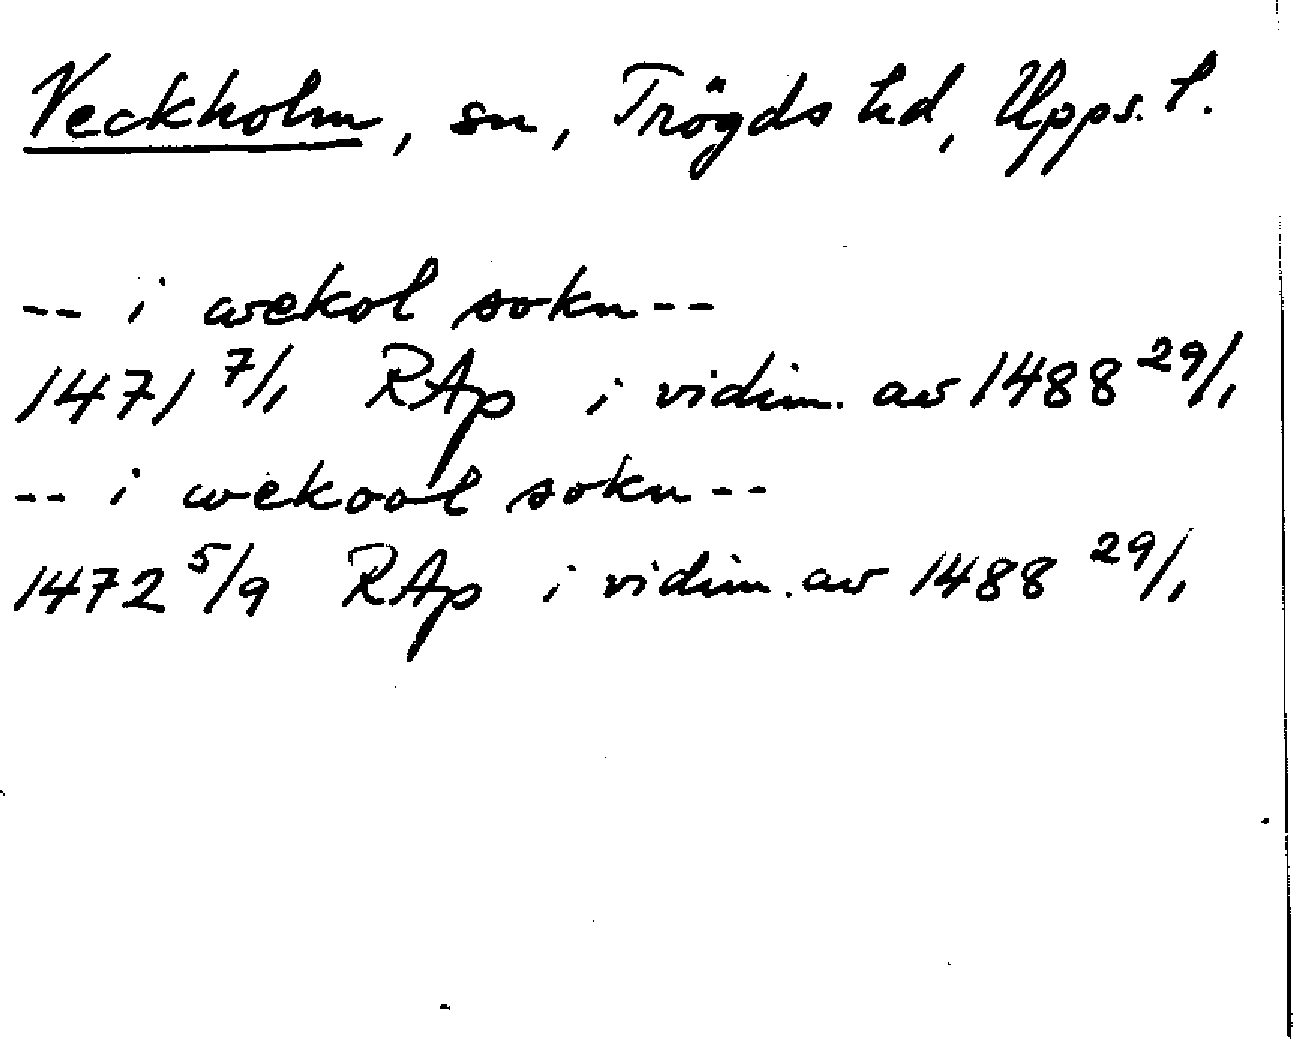 Veckholm, sn, Trögds hd, Upps. l.
-- i wekol sokn --
1471 7/1 RAp i vidim. av 1488 29/1
-- i wekool sokn --
1472 5/9 RAp i vidim. av 1488 29/1